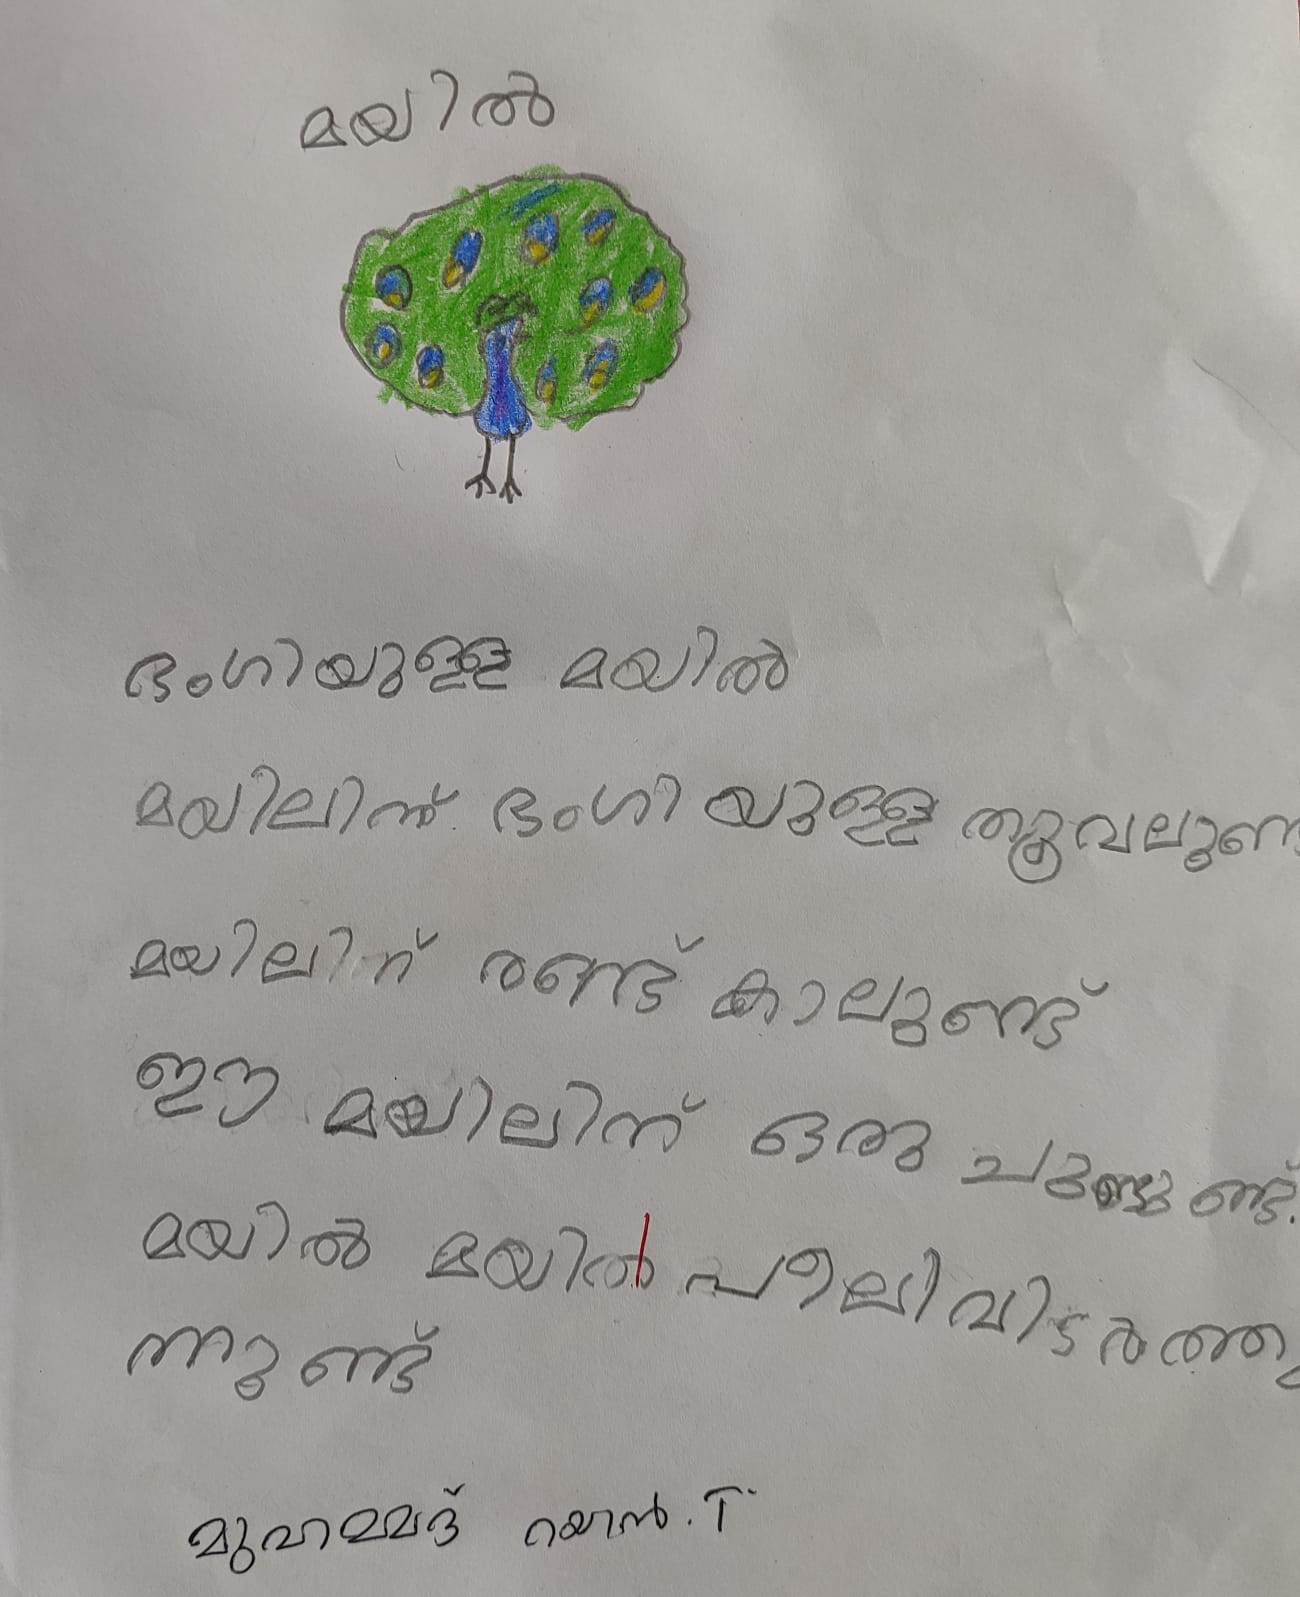 മയിൽ
ഭംഗിയുള്ള മയിൽ
മയിലിന് ഭംഗി യുള്ള തൂവലുണ്ട
മയിലിന് രണ്ട് കാലുണ്ട്
ഈ മയിലിന് ഒരു ചുണ്ടുണ്ട്.
മയിൽ മയിൽ പീലി വിടർത്തു
ന്നുണ്ട്
മുഹമ്മദ് റയാൻ.T